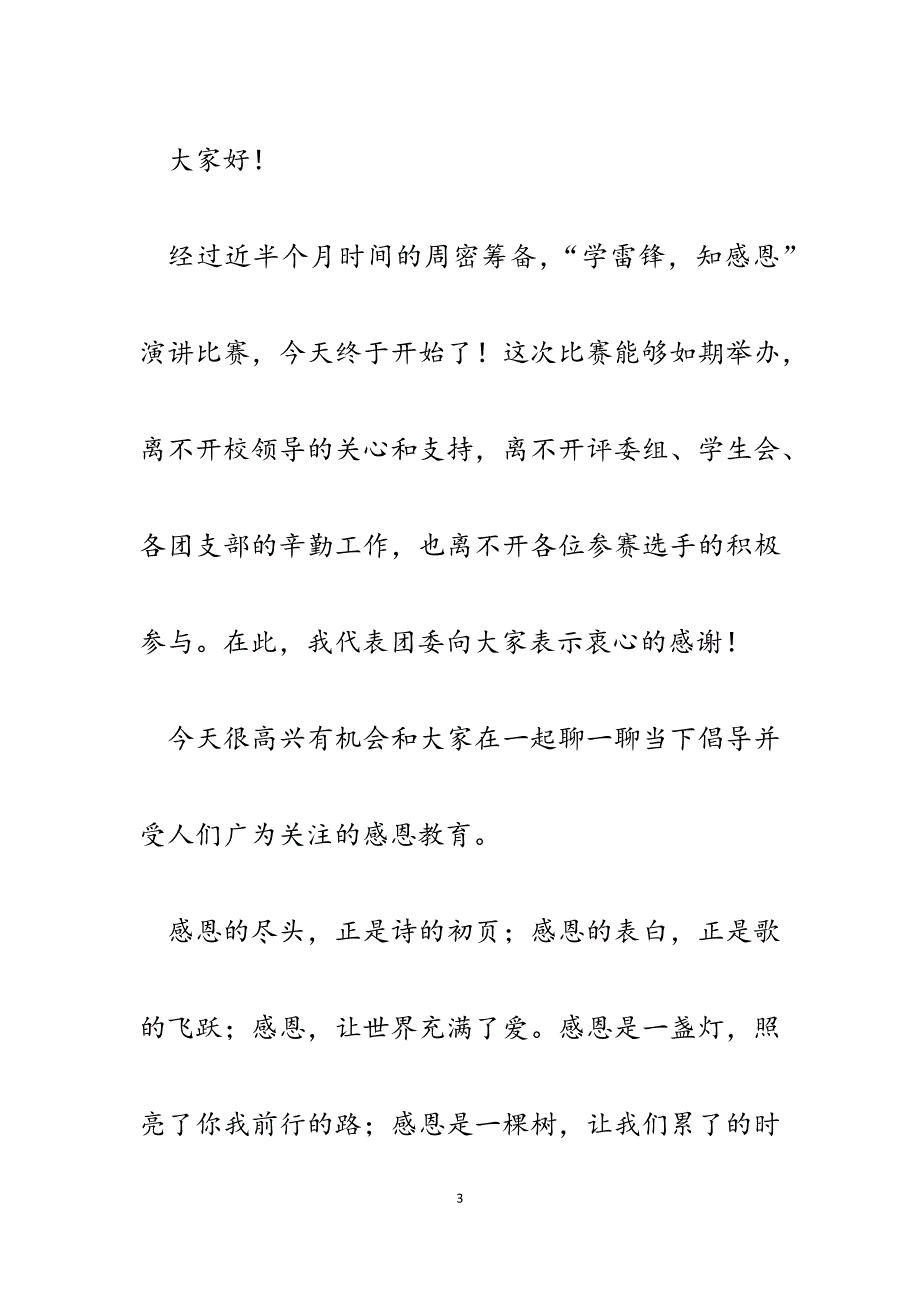 大家好！
经过近半个月时间的周密筹备，“学雷锋，知感恩”
演讲比赛，今天终于开始了！这次比赛能够如期举办，
离不开校领导的关心和支持，离不开评委组、学生会、
各团支部的辛勤工作，也离不开各位参赛选手的积极
参与。在此，我代表团委向大家表示衷心的感谢！
今天很高兴有机会和大家在一起聊一聊当下倡导并
受人们广为关注的感恩教育。
感恩的尽头，正是诗的初页；感恩的表白，正是歌
的飞跃；感恩，让世界充满了爱。感恩是一盏灯，照
亮了你我前行的路；感恩是一棵树，让我们累了的时
3